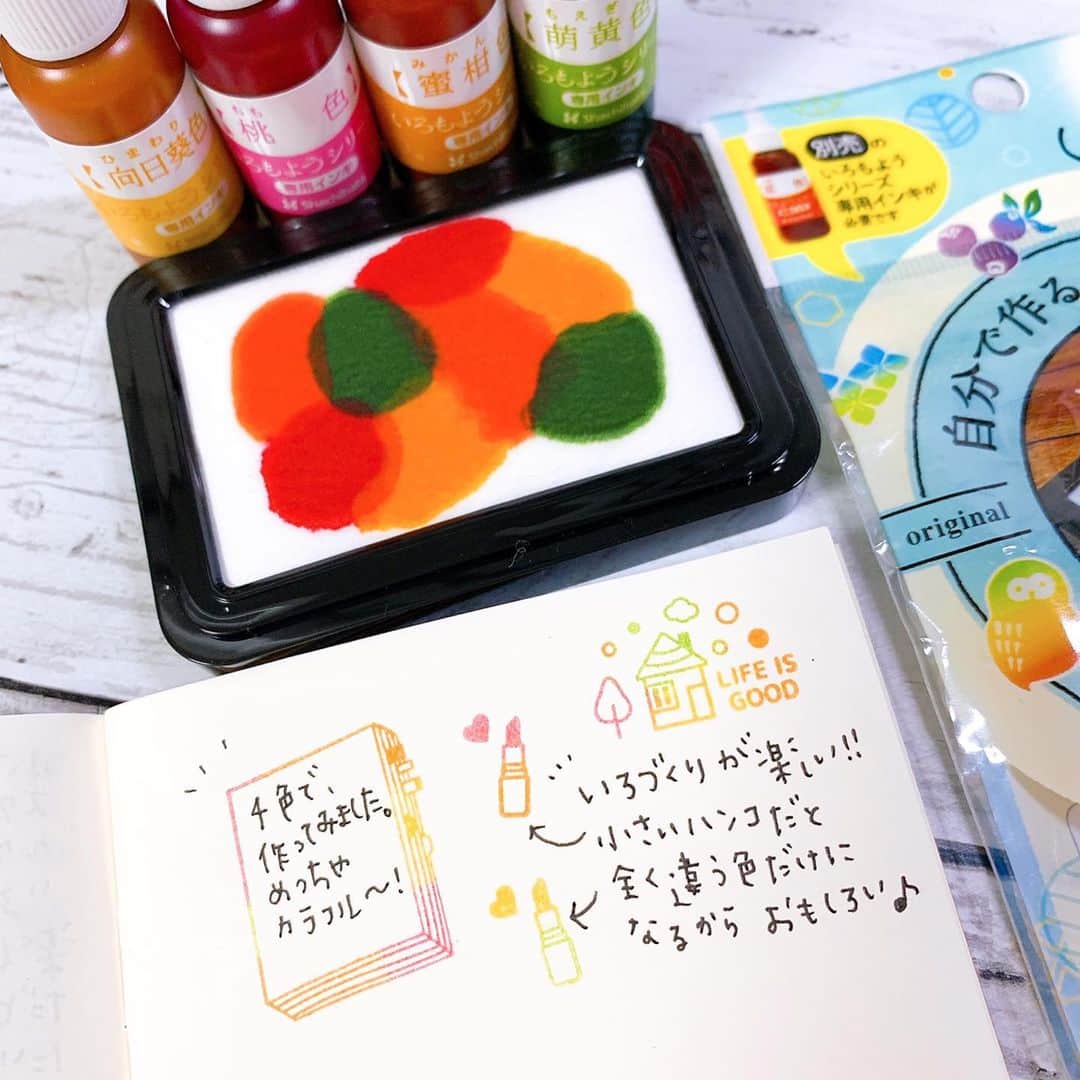 ひまわり
【向日葵色
いろもようシリ
専用インキ
Shachihata
もも
【桃 色
いろもようシリ
専用インキ
Shachihata
みかん
【蜜柑色
いろもようシリ
専用インキ
Shachihata
もえぎ
【萌黄色
いろもようシリ
専用インキ
Shachihata
別売の
いろもよう
シリーズ
専用インキが
必要です
自分で作る
original
LIFE IS
GOOD
4色で、
作ってみました。
めっちゃ
カラフル〜!
いろづくりが楽しい!!
小さいハンコだと
全く違う色だけに
なるから おもしろい♪